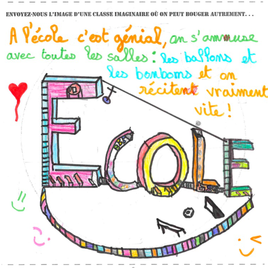 ENVOYEZ-NOUS L'IMAGE D'UNE CLASSE IMAGINAIRE OÙ ON PEUT BOUGER AUTREMENT...
A l'école c'est génial, on s'ammuse
avec toutes les salles : les ballons et
les bonbons et on
récitent vraiment
vite !
ECOLE